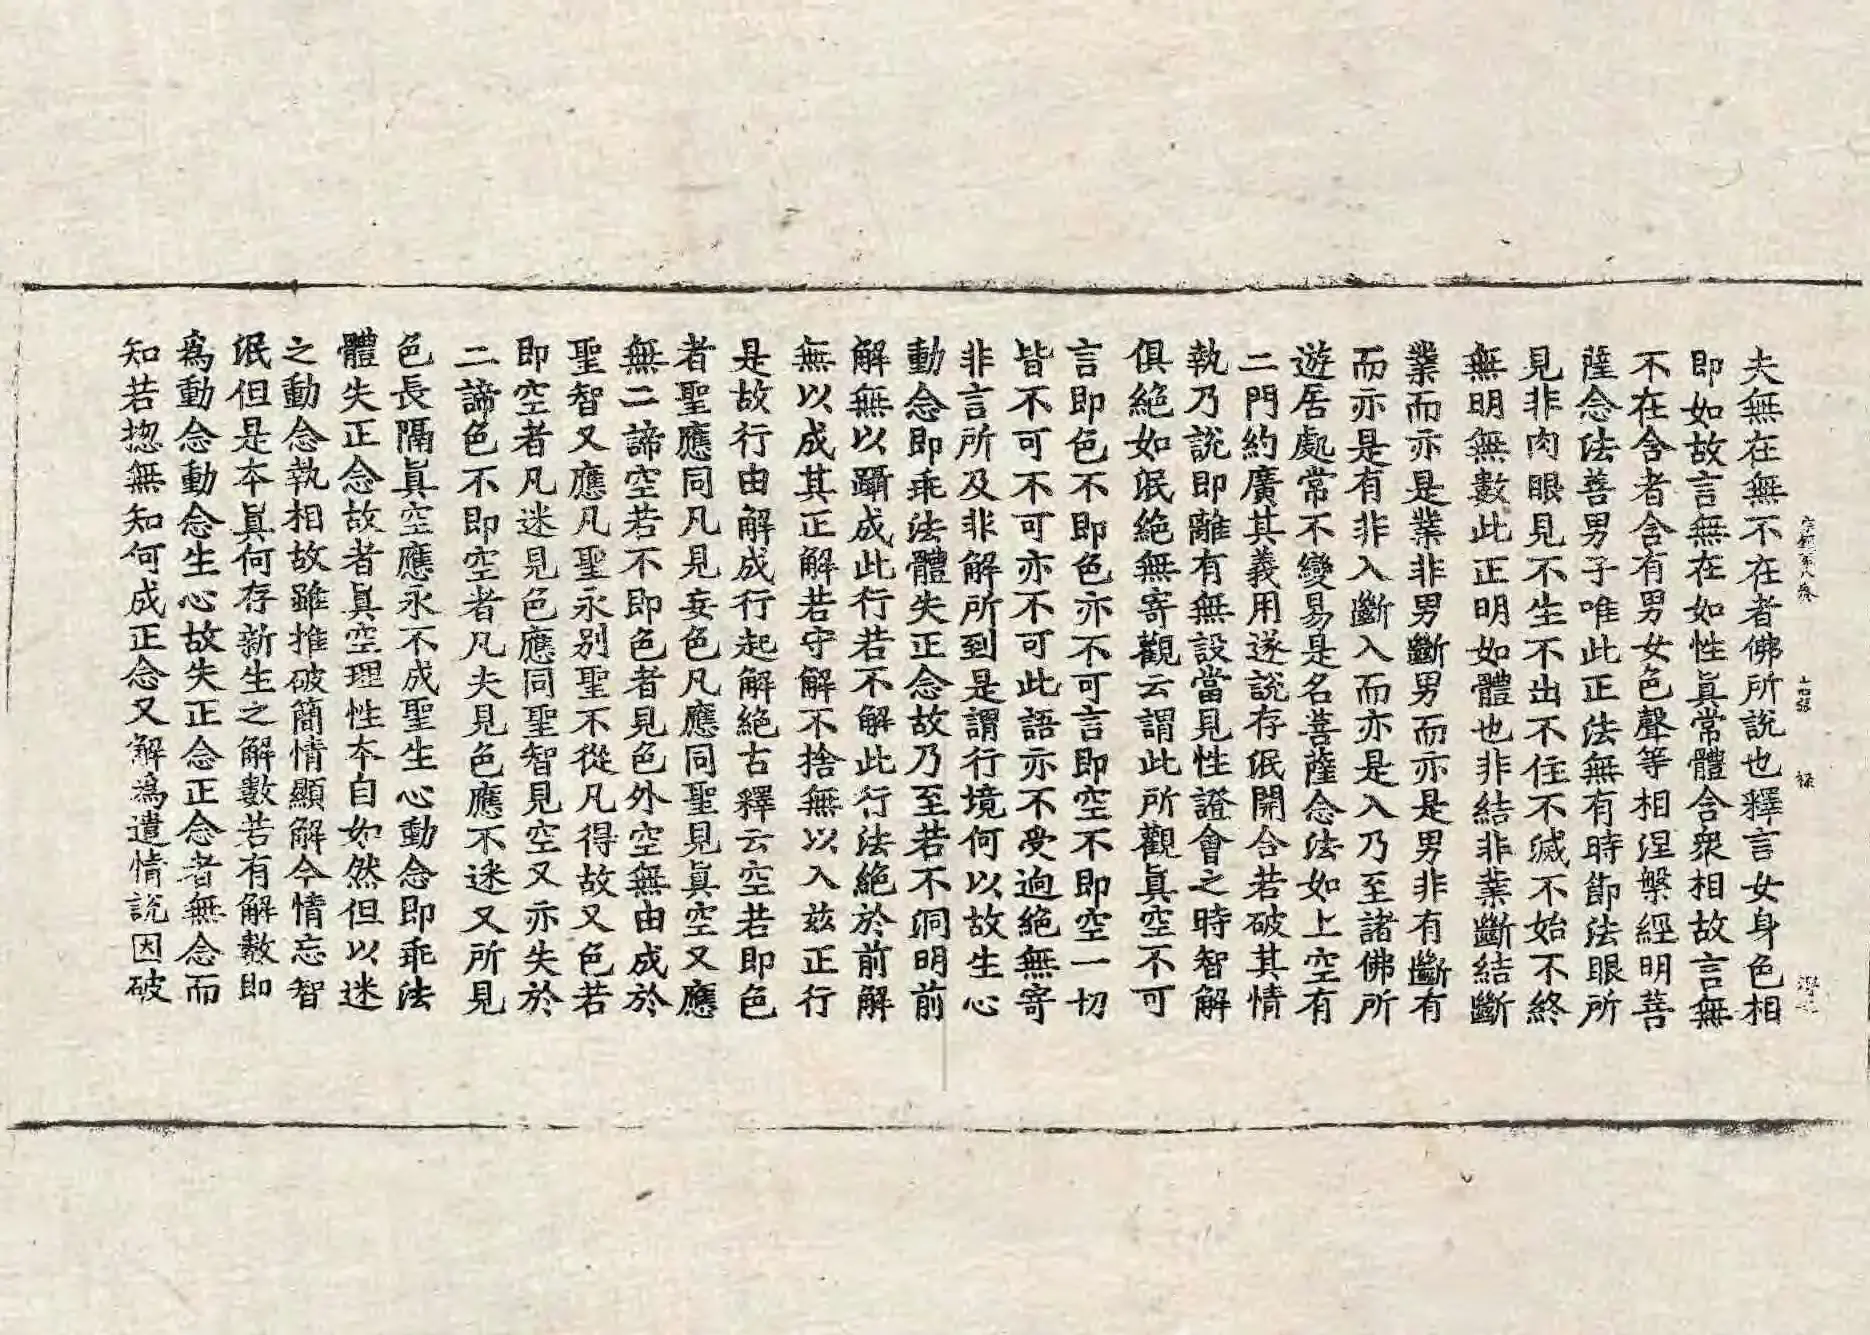 夫無在無不在者佛所說也釋言女身色相
即如故言無在如性眞常體含衆相故言無
不在含者含有男女色聲等相涅槃經明菩
薩念法善男子唯此正法無有時節法眼所
見非肉眼見不生不出不住不滅不始不終
無明無數此正明如體也非結非業斷結斷
業而亦是業非男斷男而亦是男非有斷有
而亦是有非入斷入而亦是入乃至諸佛所
遊居處常不變易是名菩薩念法如上空有
二門約廣其義用遂說存泯開合若破其情
執乃說即離有無設當見性證會之時智解
俱絕如泯絕無寄觀云謂此所觀眞空不可
言即色不即色亦不可言即空不即空一切
皆不可不可亦不可此語亦不受逈絕無寄
非言所及非解所到是謂行境何以故生心
動念即乖法體失正念故乃至若不洞明前
解無以躡成此行若不解此行法絕於前解
無以成其正解若守解不捨無以入玆正行
是故行由解成行起解絕古釋云空若即色
者聖應同凡見妄色凡應同聖見眞空又應
無二諦空若不即色者見色外空無由成於
聖智又應凡聖永別聖不從凡得故又色若
即空者凡迷見色應同聖智見空又亦失於
二諦色不即空者凡夫見色應不迷又所見
色長隔眞空應永不成聖生心動念即乖法
體失正念故者眞空理性本自如然但以迷
之動念執相故雖推破簡情顯解今情忘智
泯但是本眞何存新生之解數若有解數即
爲動念動念生心故失正念正念者無念而
知若揔無知何成正念又解爲遣情說因破